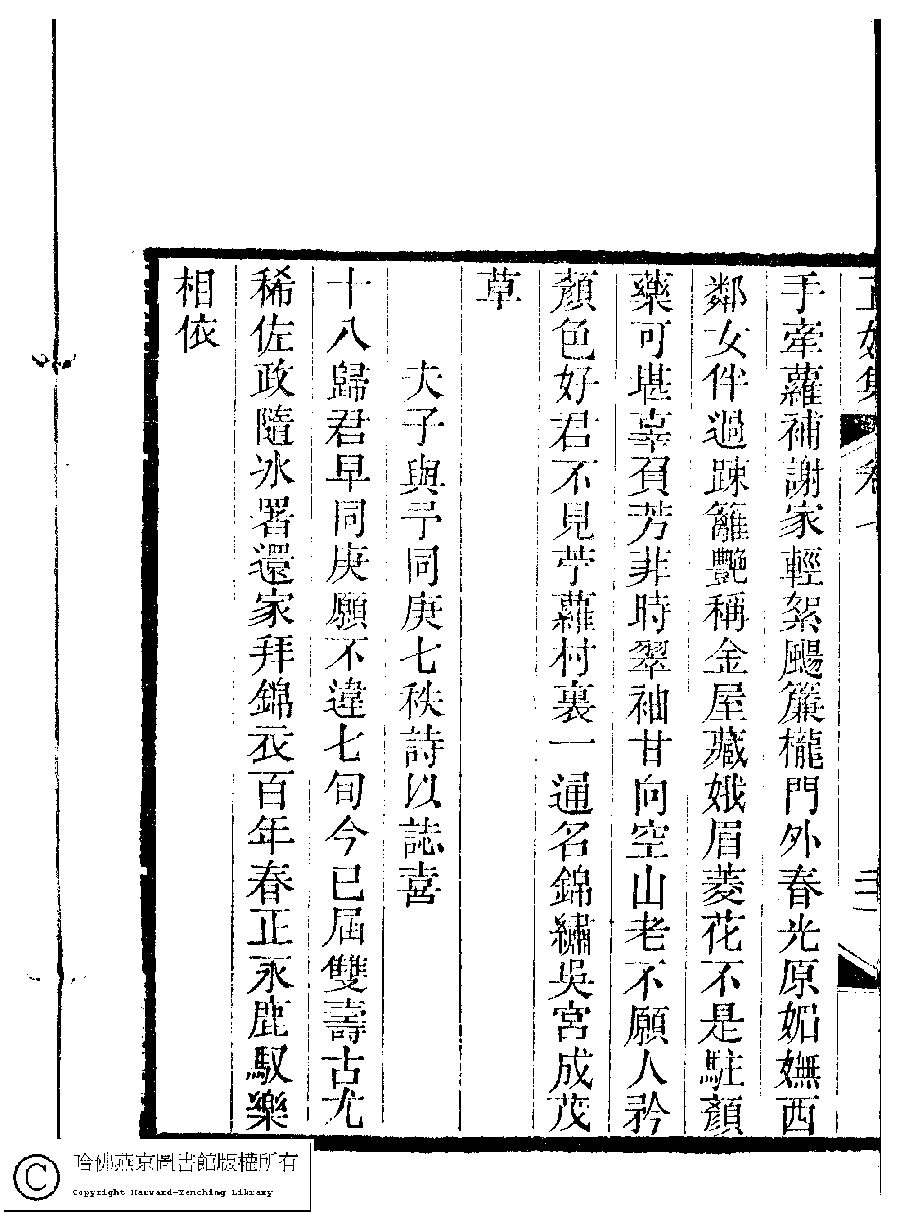 手牽蘿補謝家輕絮颺簾櫳門外春光原媚嫵西
鄰女伴過踈籬艷稱金屋藏娥眉菱花不是駐顏
藥可堪辜負芳菲時翠袖甘向空山老不願人矜
顏色好君不見苧蘿村裏一通名錦繡吳宮成茂
草
夫子與予同庚七秩詩以誌喜
十八歸君早同庚願不違七旬今已屆雙壽古尤
稀佐政隨冰署還家拜錦衣百年春正永鹿馭樂
相依
哈佛燕京圖書館版權所有
Copyright Harvard-Yenching Library